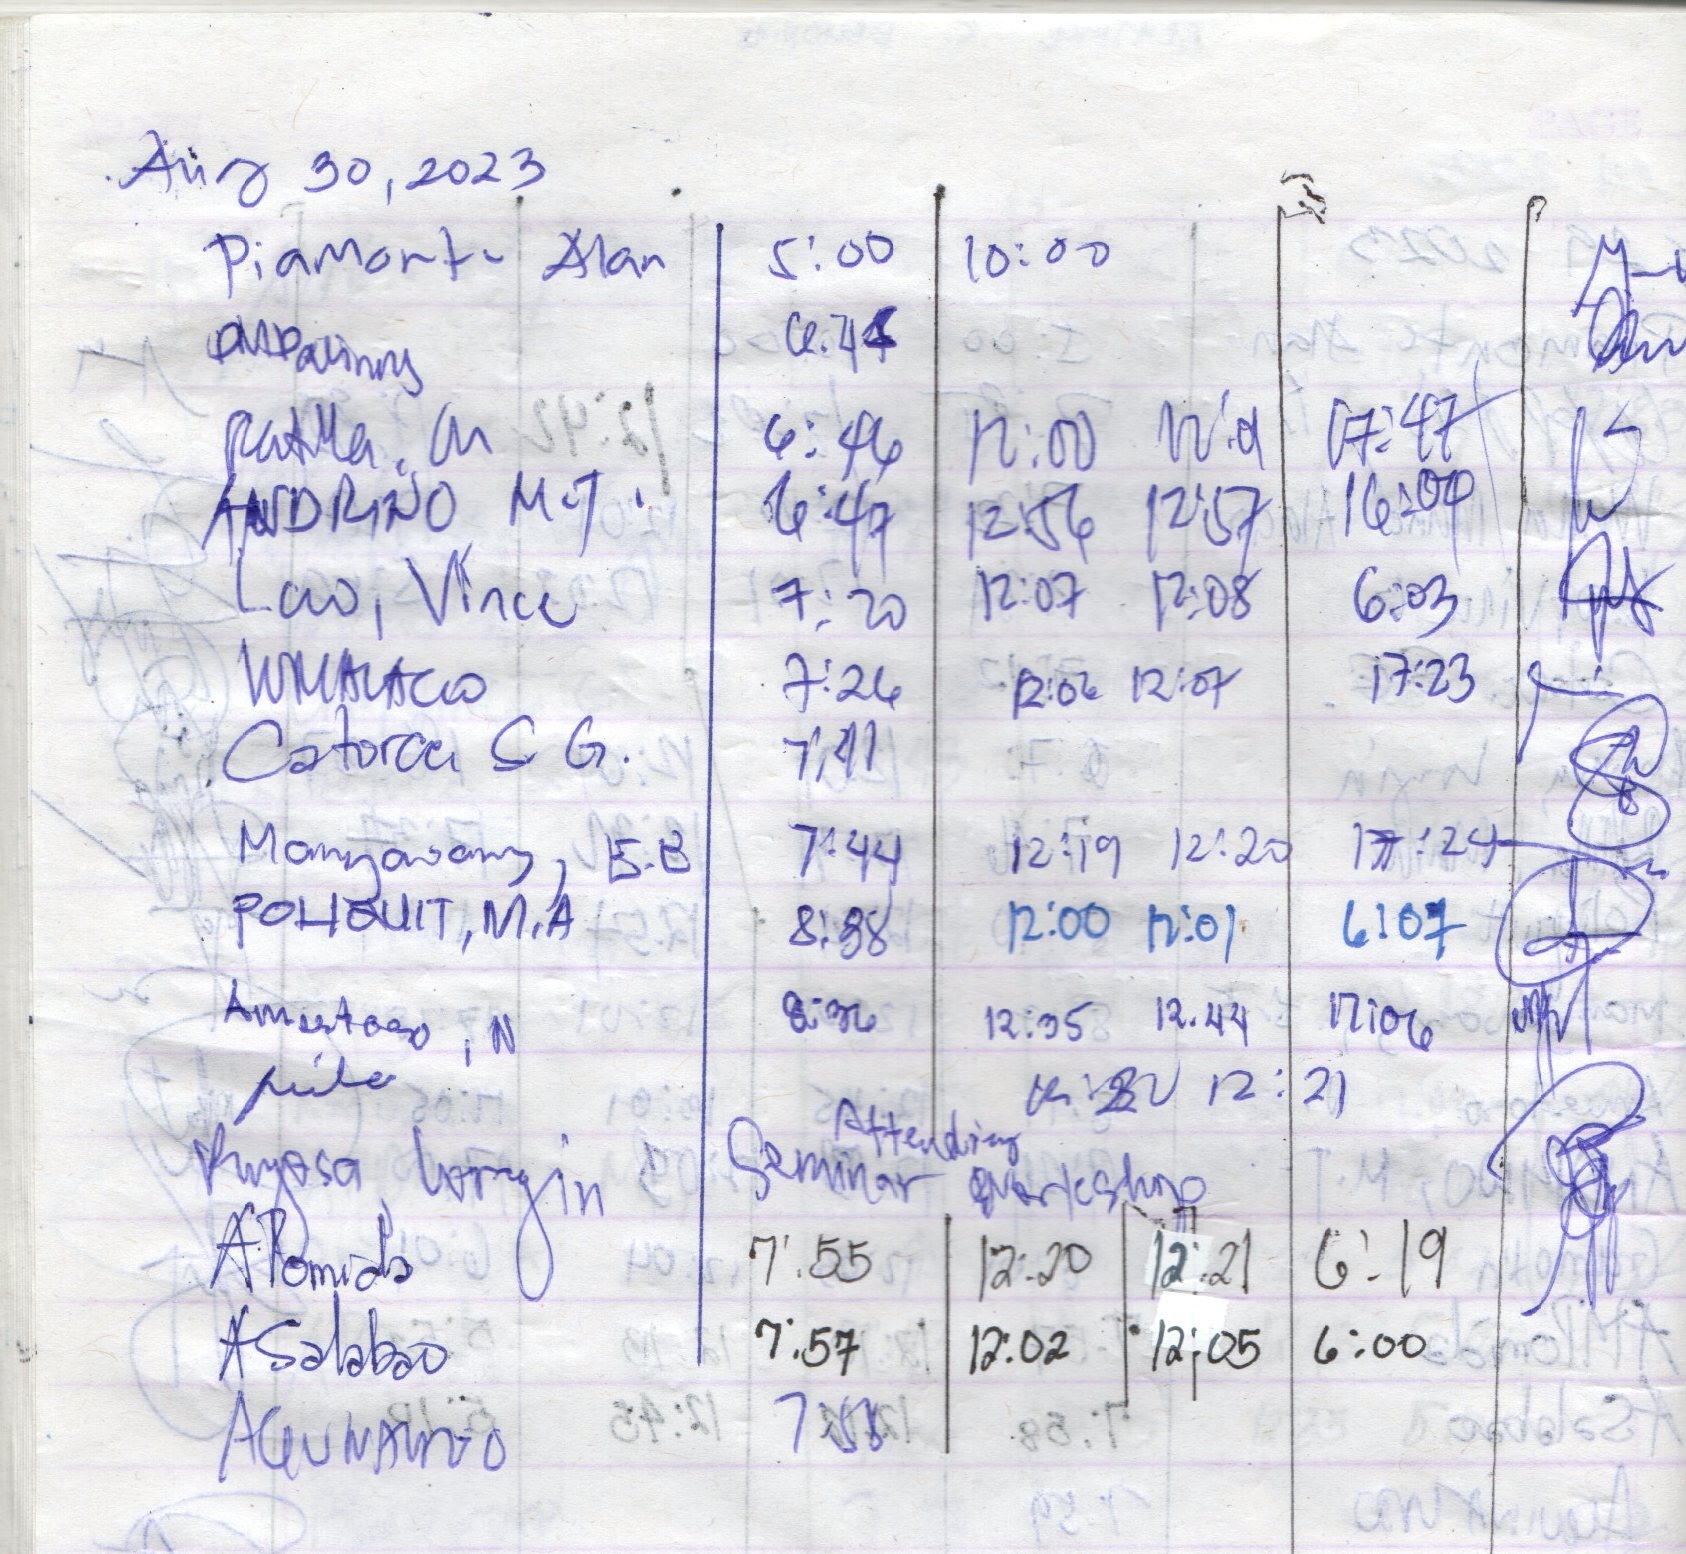 Aug 30, 2023
Piamonte Alan 5:00 10:00
6:45
Patilla, M 6:46 12:00 12:01 17:47
ANDRINO M.T. 6:47 12:56 12:57 16:00
Lao, Vince 7:20 12:07 12:08 6:03
7:26 12:06 12:07 17:23
Catorce S G. 7:41
Mangavang, E.B 7:44 12:19 12:20 17:24
POLIQUIT, M.A 8:38 12:00 12:01 6:07
Amestoso, N 8:36 12:35 12.44 17:06
12:21
Lorgin Attending
Seminar Workshop
APomida 7:55 12:20 12:21 6:19
ASalabao 7:57 12:02 12:05 6:00
7:58